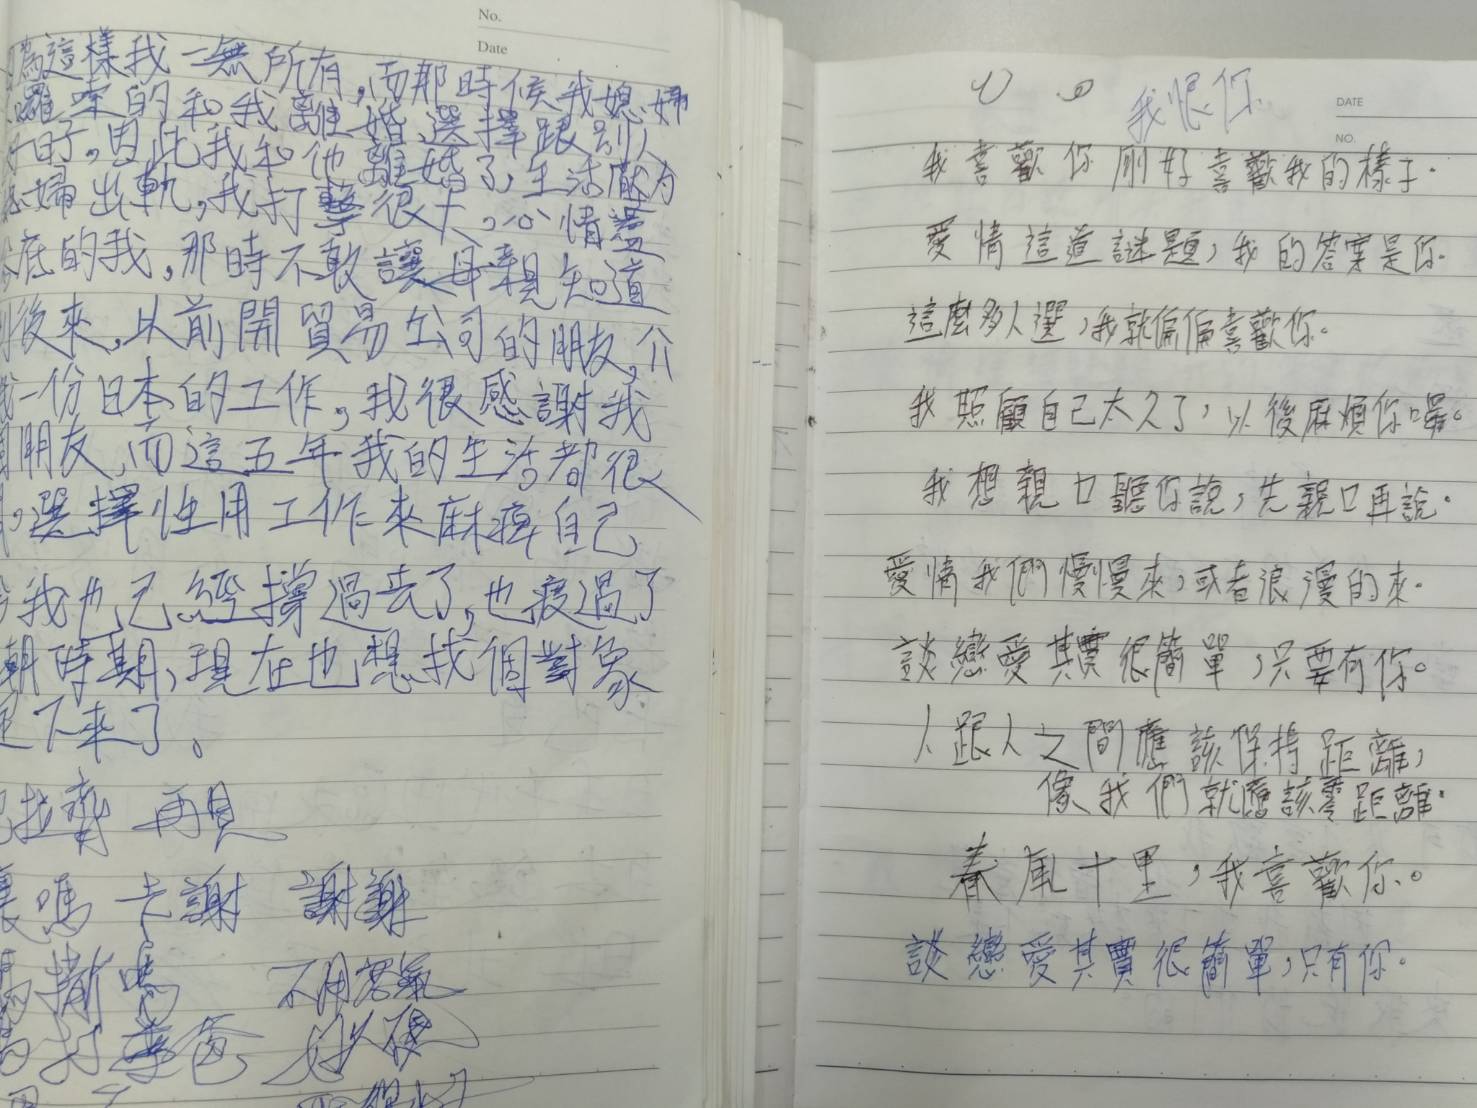 No.
Date
為這樣我一無所有,而那時候我媳婦
囉嗦的和我離婚選擇跟別人
好日子,因此我和他離婚了,生活廠為
媳婦出軌,我打擊很大,心情盪
底的我,那時不敢讓母親知道
後來,以前開貿易公司的朋友,介
我一份日本的工作,我很感謝我
朋友,而這五年我的生活都很
,選擇性用工作來麻痺自己
我也已經撐過去了,也度過了
潮時期,現在也想找個對象
下來了。
拉齊 再見
裏嗎 卡謝 謝謝
撒嗎 不用客氣
打 爸
我恨你
DATE
NO.
我喜歡你剛好喜歡我的樣子.
愛情這道謎題,我的答案是你.
這麼多人選,我就偏偏喜歡你.
我照顧自己太久了,以後麻煩你囉。
我想親口聽你說,先親口再說.
愛情我們慢慢來,或者浪漫的來.
談戀愛其實很簡單,只要有你。
人跟人之間應該保持距離,
像我們就應該零距離.
春風十里,我喜歡你。
談戀愛其實很簡單,只有你.